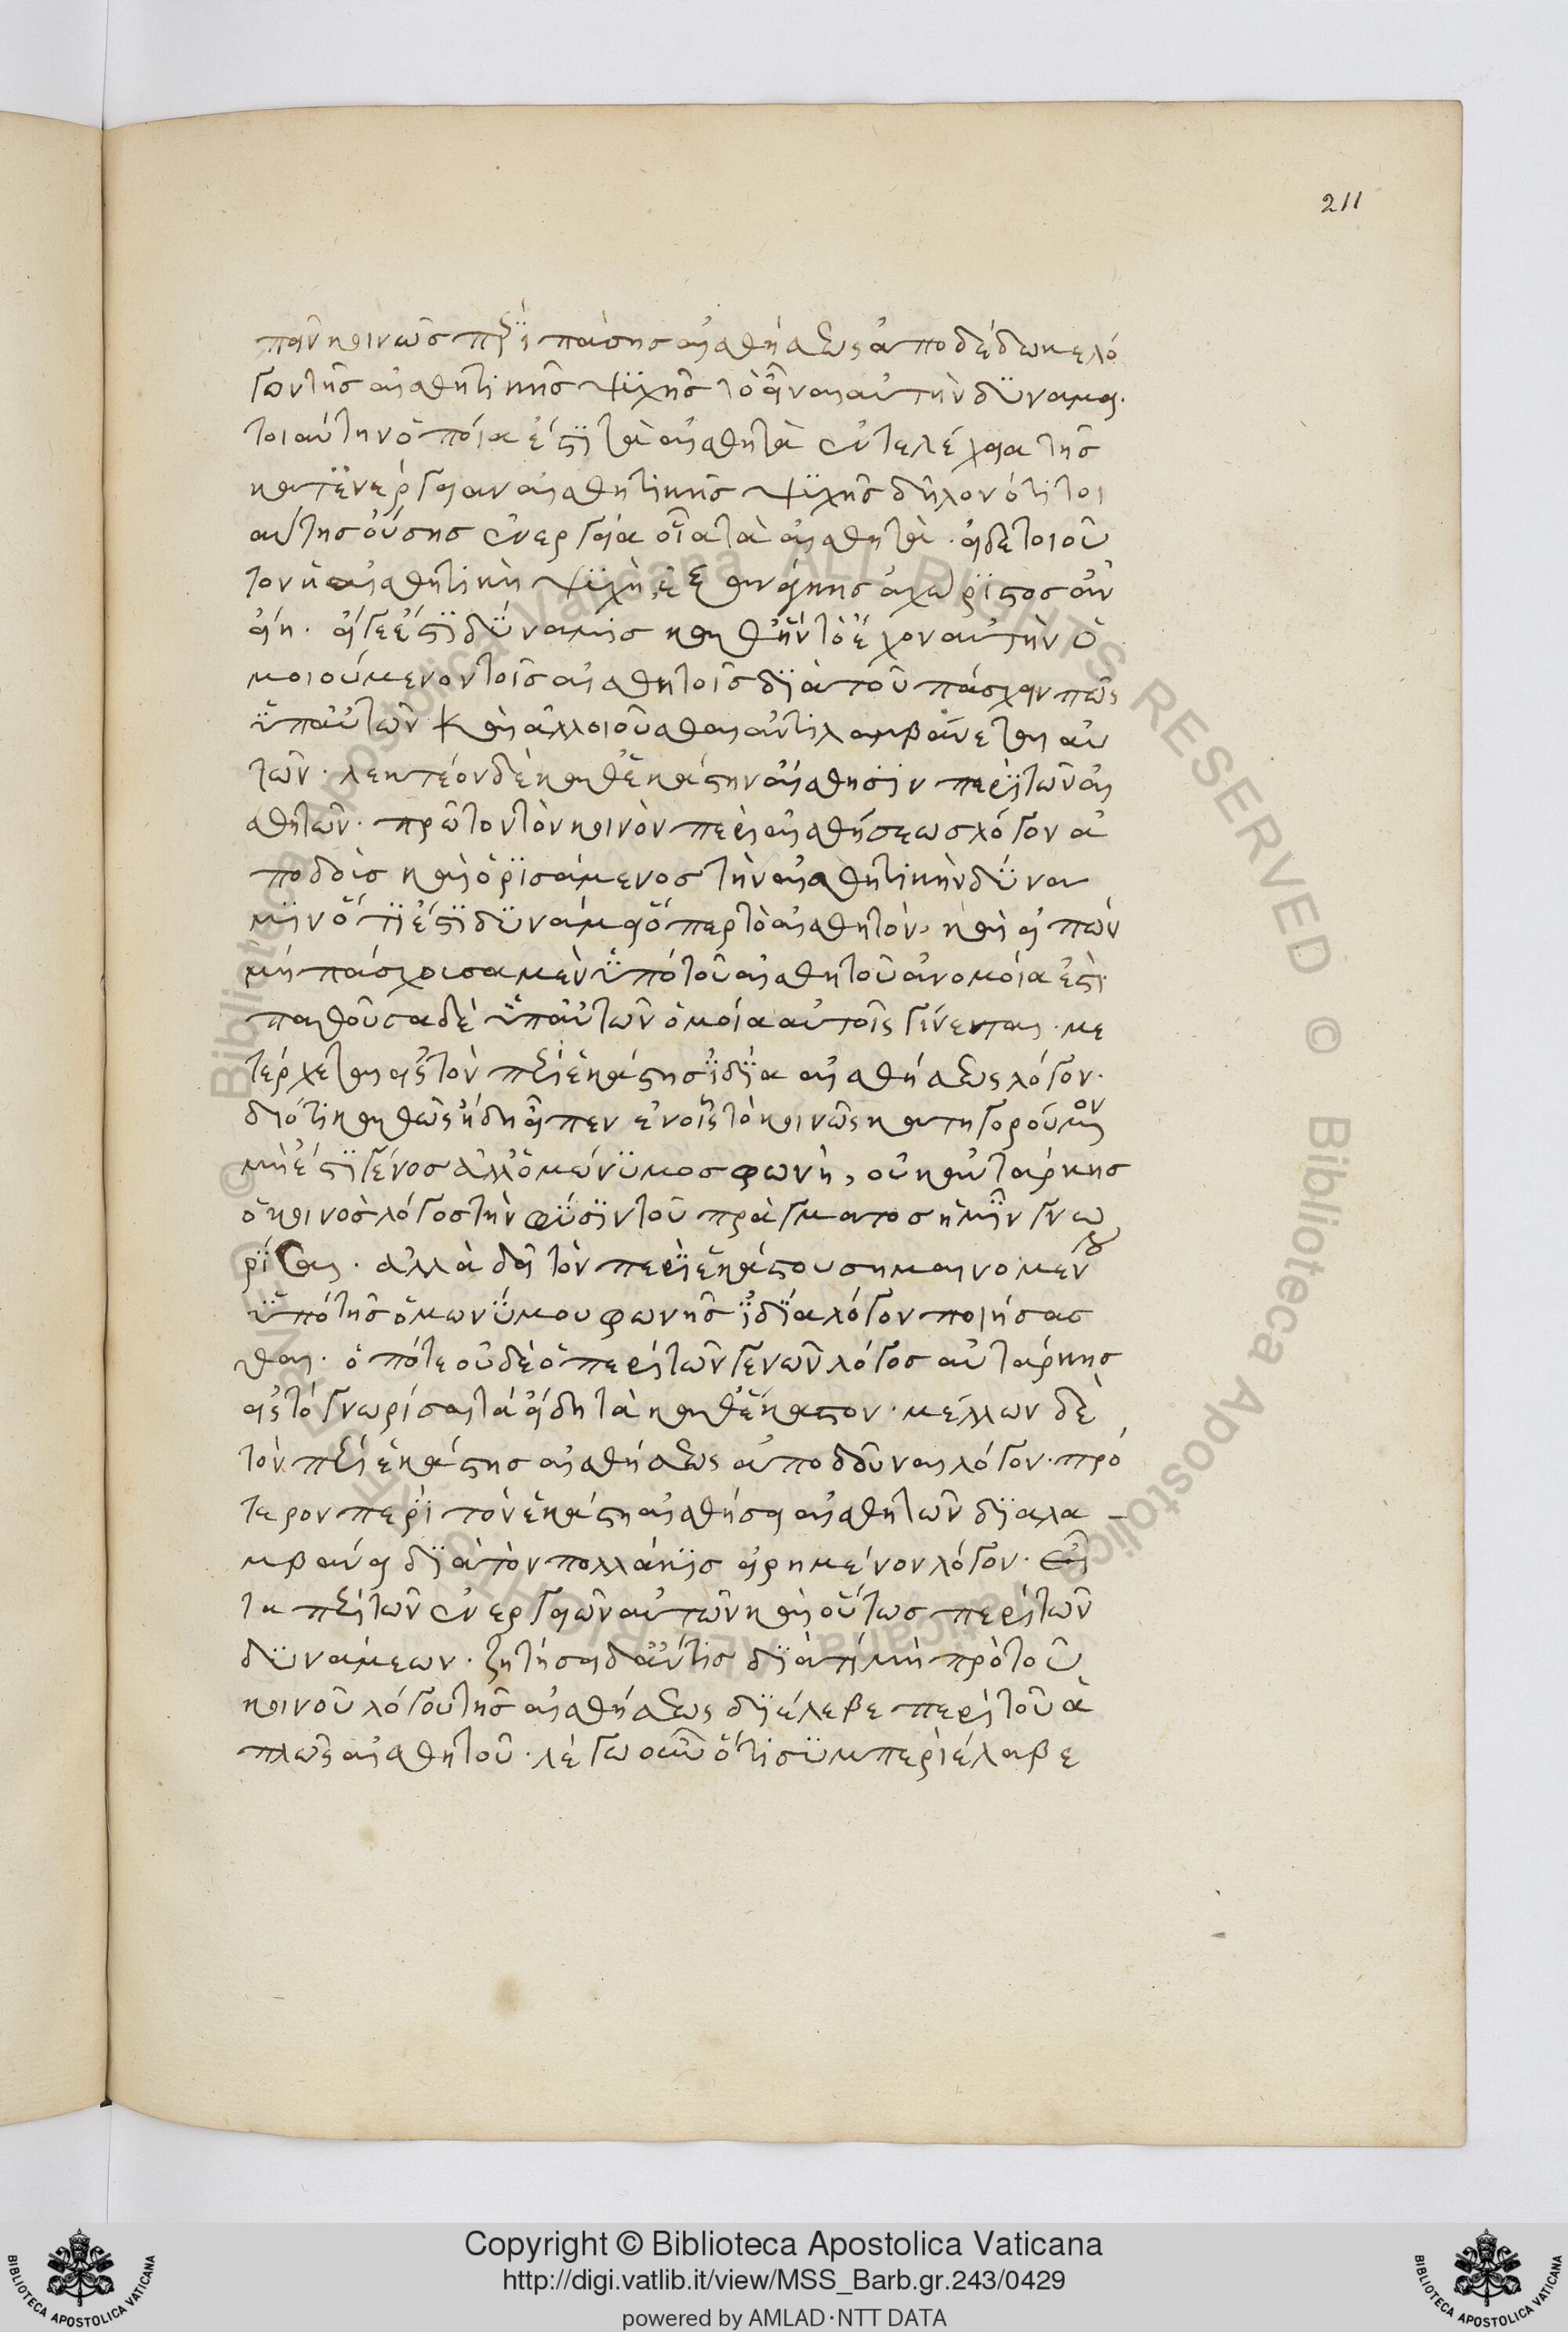 211
πεῖν κοινῶς περὶ πάσης αἰσθήσεως ἀποδέδωκε λό
γον τῆς αἰσθητικῆς ψυχῆς τὸ εἶναι αὐτὴν δύναμει
τοιαύτην ὁποία ἐστὶ τὰ αἰσθητὰ ἐντελέχεια τῆς
κατ' ἐνέργειαν αἰσθητικῆς ψυχῆς δηλονότι τοι
αύτης οὔσης ἐνεργεία οἷα τὰ αἰσθητά. εἰ δὲ τοιοῦ
τον ἡ αἰσθητικὴ ψυχὴ, ἐξ ἀνάγκης ἀχώριστος ἂν
εἴη. εἴγε ἐστὶ δύναμις καθ' ἣν τὸ ἔχον αὐτὴν ὁ
μοιούμενον τοῖς αἰσθητοῖς διὰ τοῦ πάσχειν πῶς
ὑπ' αὐτῶν καὶ ἀλλοιοῦσθαι ἀντιλαμβάνεται αὐ
τῶν. λεκτέον δὲ καθ' ἑκάστην αἴσθησιν περὶ τῶν αἰ
σθητῶν. πρῶτον τὸν κοινὸν περὶ αἰσθήσεως λόγον ἀ
ποδοὺς καὶ ὁρισάμενος τὴν αἰσθητικὴν δύνα
μιν ὅτι ἐστὶ δυνάμει ὅπερ τὸ αἰσθητόν, καὶ εἰπὼν
μὴ πάσχουσα μὲν ὑπὸ τοῦ αἰσθητοῦ ἀνομοία ἐστί
παθοῦσα δὲ ὑπ' αὐτῶν ὁμοία αὐτοῖς γίνεται. με
τέρχεται εἰς τὸν περὶ ἑκάστης ἰδία αἰσθήσεως λόγον.
διότι καθὼς ἤδη εἶπεν ἐν οἷς τὸ κοινῶς κατηγορούμενον
μὴ ἐστὶ γένος ἀλλ' ὁμώνυμος φωνὴ, οὐκ αὐτάρκης
ὁ κοινὸς λόγος τὴν φύσιν τοῦ πράγματος ἡμῖν γνω
ρίσαι. ἀλλὰ δεῖ τὸν περὶ ἑκάστου σημαινομένου
ὑπὸ τῆς ὁμωνύμου φωνῆς ἰδία λόγον ποιήσασ
θαι. ὁπότε οὐδὲ ὁ περὶ τῶν γενῶν λόγος αὐτάρκης
εἰς τὸ γνωρίσαι τὰ εἴδη τὰ καθ' ἕκαστον. μέλλων δὲ
τὸν περὶ ἑκάστης αἰσθήσεως ἀποδοῦναι λόγον. πρό
τερον περὶ τὸν ἑκάστη αἰσθήσει αἰσθητῶν διαλα
μβάνει διὰ τὸν πολλάκις εἰρημένον λόγον. εἶ
τα περὶ τῶν ἐνεργειῶν αὐτῶν καὶ οὕτως περὶ τῶν
δυνάμεων. ζητήσει δ' ἄν τις διὰ τί μὴ πρὸ τοῦ
κοινοῦ λόγου τῆς αἰσθήσεως διέλεβε περὶ τοῦ ἁ
πλῶς αἰσθητοῦ. λέγω οὖν ὅτι συμπεριέλαβε
Copyright © Biblioteca Apostolica Vaticana
http://digi.vatlib.it/view/MSS_Barb.gr.243/0429
powered by AMLAD·NTT DATA